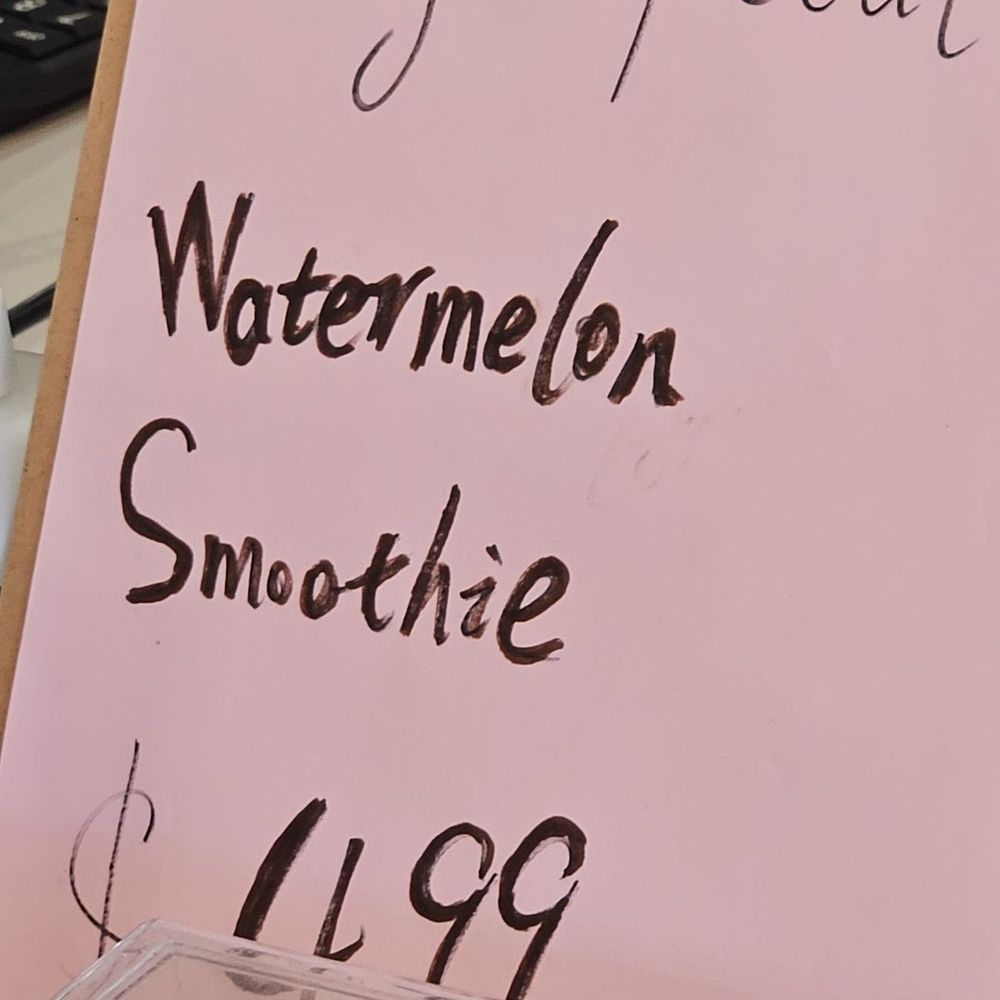 Watermelon
Smoothie
$ 499